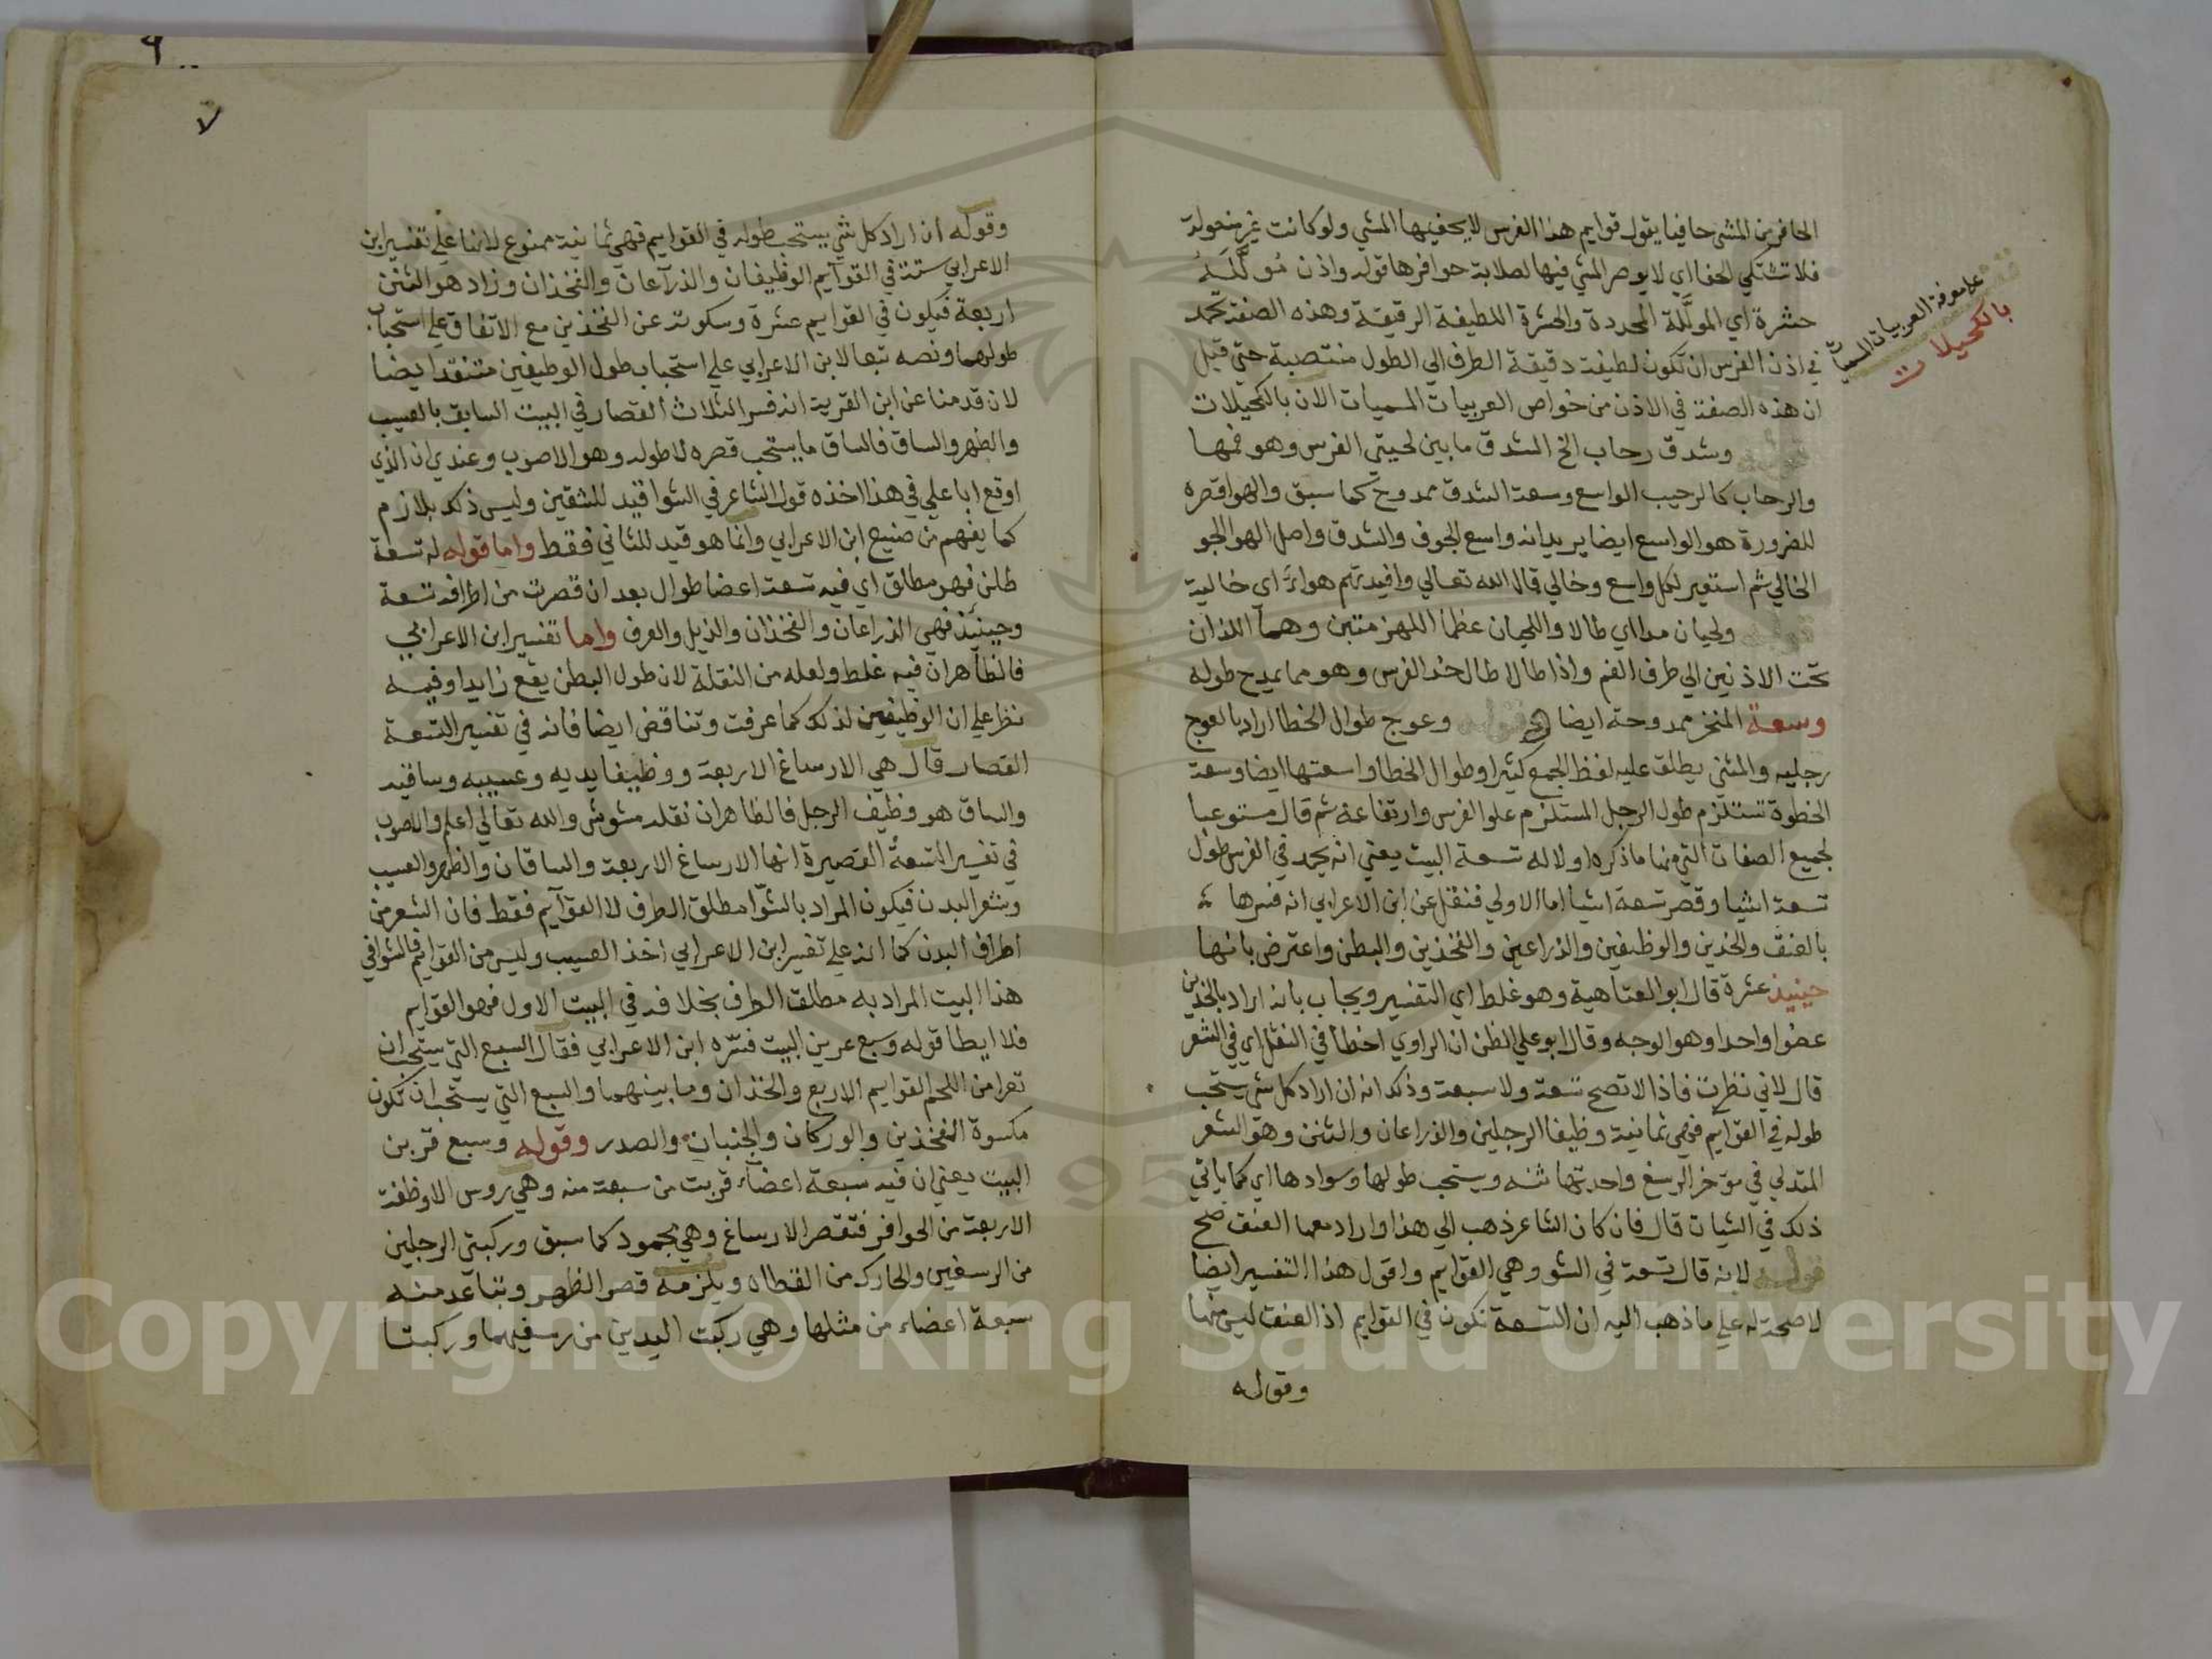 الحافر من المشي حافيا يقول قوايم هذا الفرس لا يحفيها المشي ولو كانت غير منعولة
فلا تشتكي الحفا اي لا يوصر المشي فيها لصلابة حوافرها قوله واذن مُولَّلَةُ
حشرة اي المولَّلة المحددة والحشرة اللطيفة الرقيقة وهذه الصفة تحمد
في اذن الفرس ان تكون لطيفة دقيقة الطرف الي الطول منتصبة حتي قيل
ان هذه الصفة في الاذن من خواص العربيات المسميات الان بالكحيلات
على معرفة العربيات المسميات
بالكحيلات
وشدق رحاب الخ الشدق ما بين لحيتي الفرس وهو فمها
والرحاب كالرحيب الواسع وسعة الشدق ممدوح كما سبق والهوا قصره
للضرورة هو الواسع ايضا يريد انه واسع الجوف والشدق واصل الهوا الجو
الخالي ثم استعير لكل واسع وخالي قال الله تعالي وافيدتهم هواء اي خالية
ولحيان مدا اي طالا واللحيان عظما اللهزمتين وهما اللذان
تحت الاذنين الي طرف الفم واذا طالا طال خد الفرس وهو مما يمدح طوله
وسعة المنخر ممدوحة ايضا قوله وعوج طوال الخطا اراد بالعوج
رجليه والمثني يطلق عليه لفظ الجمع كثيرا وطوال الخطا واسعتها ايضا وسعة
الخطوة تستلزم طول الرجل المستلزم علو الفرس وارتفاعه ثم قال مستوعبا
لجميع الصفات التي منها ما ذكره اولا له تسعة البيت يعني انه يحمد في الفرس طول
تسعة اشيا وقصر تسعة اشيا اما الاولي فنقل عن ابن الاعرابي انه فسرها
بالعنق والخدين والوظيفين والذراعين والفخذين والبطن واعترض بانها
حينيذ عشرة قال ابو العتاهية وهو غلط اي التفسير ويجاب بانه اراد بالخدين
عضوا واحدا وهو الوجه وقال ابو علي الظن ان الراوي اخطا في النقل اي في الشعر
قال لاني نظرت فاذا لا تصح تسعة ولا سبعة وذلك انه ان اراد كل شي يستحب
طوله في القوآيم فهي ثمانية وظيفا الرجلين والذراعان والثنن وهو الشعر
المتدلي في مؤخر الرسغ واحدتها ثنه ويستحب طولها وسوادها اي كما ياتي
ذلك في الشيات قال فان كان الشاعر ذهب الي هذا واراد معها العنق صح
قوله لانه قال تسعة في الشو وهي القوايم واقول هذا التفسير ايضا
لا صحة له علي ما ذهب اليه ان التسعة تكون في القوايم اذ العنق ليس منها
وقوله
٧
وقوله ان اراد كل شي يستحب طوله في القوايم فهي ثمانية ممنوع لاننا علي تفسير ابن
الاعرابي ستة في القوآيم الوظيفان والذرآعان والفخذان وزاد هو الثنن
اربعة فيكون في القوايم عشرة وسكوته عن الفخذين مع الاتفاق علي استحباب
طولهما ونصه تبعا لابن الاعرابي علي استحباب طول الوظيفين منتقد ايضا
لان قدمنا عن ابن القرية انه فسر الثلاث القصار في البيت السابق بالعسيب
والظهر والساق فالساق ما يستحب قصره لا طوله وهو الاصوب وعندي ان الذي
اوقع ابا علي في هذا اخذه قول الشاعر في الشوا قيد للشقين وليس ذلك بلازم
كما يفهم من صنيع ابن الاعرابي وانما هو قيد للثاني فقط واما قوله له تسعة
طلن فهو مطلق اي فيه تسعة اعضا طوال بعد ان قصرت من اطرافه تسعة
وحينئذ فهي الذراعان والفخذان والذيل والعرف واما تفسير ابن الاعرابي
فالظاهر ان فيه غلط ولعله من النقلة لان طول البطن يقع زايدا وفيه
نظر علي ان الوظيفين لذلك كما عرفت وتناقض ايضا فانه في تفسير التسعة
القصار قال هي الارساغ الاربعة ووظيفا يديه وعسيبه وساقيه
والساق هو وظيف الرجل فالظاهر ان نقله مشوش والله تعالي اعلم والاصوب
في تفسير التسعة القصيرة انها الارساغ الاربعة والساقان والظهر والعسيب
وشعر البدن فيكون المراد بالشوّا مطلق الطرف لا القوآيم فقط فان الشعر من
اطراف البدن كما انه علي تفسير ابن الاعرابي اخذ العسيب وليس من القوايم فالشوا في
هذا البيت المراد به مطلق الطرف بخلافه في البيت الاول فهو القوايم
فلا ايطا قوله وسبع عرين البيت فسّره ابن الاعرابي فقال السبع التي يستحب ان
تعرا من اللحم القوايم الاربع والخذان وما بينهما والسبع التي يستحب ان تكون
مكسوة الفخذين والوركان والجنبان والصدر وقوله وسبع قربن
البيت يعني ان فيه سبعة اعضآء قربت من سبعة منه وهي روس الاوظفة
الاربعة من الحوافر فتقصر الارساغ وهي محمود كما سبق وركبتي الرجلين
من الرسغين والحارك من القطاه ويلزمه قصر الظهر وتباعد منه
سبعة اعضاء من مثلها وهي ركبت اليدين من رسغيهما وركبتا
Copyright © King Saud University